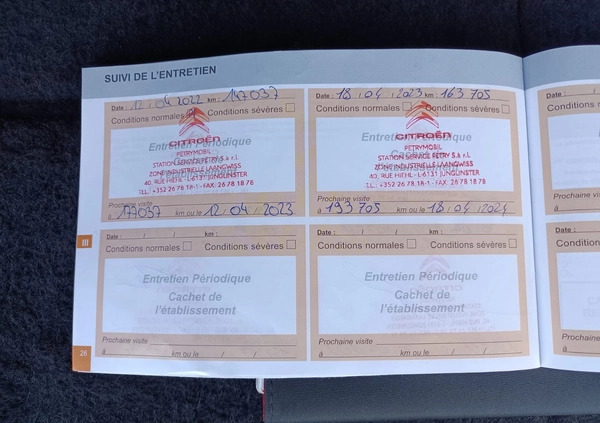 SUIVI DE L'ENTRETIEN
Date : 12 / 04 / 2022 km : 147037
Conditions normales Conditions sévères
Entretien Périodique
CITROËN
PETRYMOBIL
STATION SERVICE PETRY S.à r.l.
ZONE INDUSTRIELLE LAANGWISS
40, RUE HIEHL - L-6131 JUNGLINSTER
TEL.: +352 26 78 18-1 - FAX: 26 78 18 78
Prochaine visite
à 177037 km ou le 12 / 04 / 2023
Date : 18 / 04 / 2023 km : 163 705
Conditions normales Conditions sévères
Entretien Périodique
CITROËN
PETRYMOBIL
STATION SERVICE PETRY S.à r.l.
ZONE INDUSTRIELLE LAANGWISS
40, RUE HIEHL - L-6131 JUNGLINSTER
TEL.: +352 26 78 18-1 - FAX: 26 78 18 78
Prochaine visite
à 193 705 km ou le 18 / 04 / 2024
Date : / / km :
Conditions normales Conditions sévères
Entretien Périodique
Cachet de
l'établissement
Prochaine visite
à km ou le / /
Date : / / km :
Conditions normales Conditions sévères
Entretien Périodique
Cachet de
l'établissement
Prochaine visite
à km ou le / /
III
26
Date :
Conditio
Prochaine
à
Date :
Condit
Prochain
à